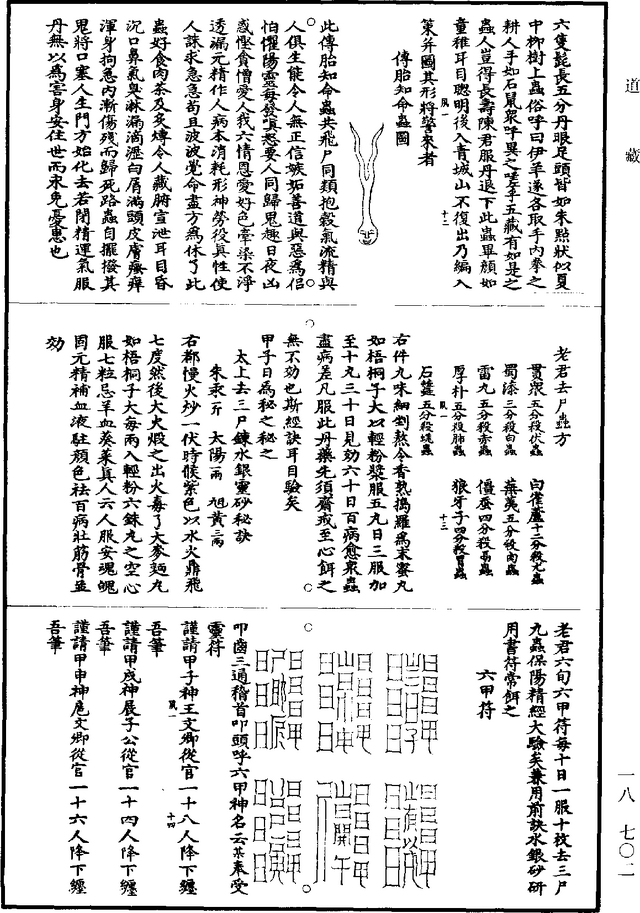 道藏
六隻髭長五分丹眼足頭皆如朱點狀似夏
中柳樹上蟲俗呼曰伊羊遂各取手內拳之
耕人手如石鼠衆呼異之嗟乎五藏有如是之
蟲人豈得長壽陳君服丹退下此蟲畢顏如
童稚耳目聰明後入青城山不復出乃編入
策并圖其形將警來者
傳胎知命蟲圖
此傳胎知命蟲共飛尸同類抱榖氣流精與
人俱生能令人無正信嫉妬善道與惡爲侣
怕懼陽靈每發嗔怒要人同歸鬼趣日夜凶
慼慳貪憎愛人我六情恩愛好色牽染不淨
透漏元精作人病本消耗形神勞役真性使
人謀求急急苟且波波覺命盡方爲休了此
蟲好食肉茶及炙煿令人藏腑宣泄耳目昏
沉口鼻氣臭淋漏滴瀝白屑滿頭皮膚癢痒
渾身拘急內漸傷殘而歸死路蟲自擺撥其
鬼將口塞人生門方始化去若閉精運氣服
丹無以爲害身安住世而未免憂患也
老君去尸蟲方
貫衆五分殺伏蟲 白雀蘆十二分殺尤蟲
蜀漆三分殺白蟲 蕪荑五分殺肉蟲
雷丸五分殺赤蟲 僵蚕四分殺鬲蟲
厚朴五分殺肺蟲 狼牙子四分殺胃蟲
石蠶五分殺蛲蟲
右件九味細剉熬令香熟搗羅爲末蜜丸
如梧桐子大以輕粉漿服五丸日三服加
至十丸三十日見効六十日百病愈衆蟲
盡病差凡服此丹藥先須齋戒至心餌之
無不効也斯經訣耳目驗矣
甲子日爲秘之秘之
太上去三尸鍊水銀靈砂秘訣
朱汞斤 太陽兩 旭黄三兩
右都慢火炒一伏時候紫色以水火鼎飛
七度然後大火煅之出火毒了大麥麵丸
如梧桐子大每兩入輕粉六銖丸之空心
服七粒忌羊血葵菜真人云人服安魂魄
固元精補血液駐顏色祛百病壯筋骨並
効
老君六甸六甲符每十日一服十枚去三尸
九蟲保陽精經大驗矣兼用前訣水銀砂研
用書符常餌之
六甲符
叩齒三通稽首叩頭呼六甲神名云某奉受
靈符
謹請甲子神王文卿從官一十八人降下纏
吾筆
謹請甲戌神展子公從官一十四人降下纏
吾筆
謹請甲申神扈文卿從官一十六人降下纏
吾筆
一八 七〇二